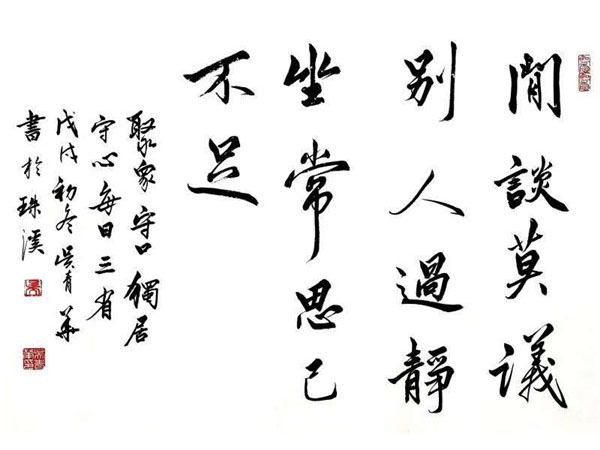 閒談莫議
別人過靜
坐常思己
不足
聚眾守口獨居
守心每日三省
戊戌初冬吳青華
書於珠溪